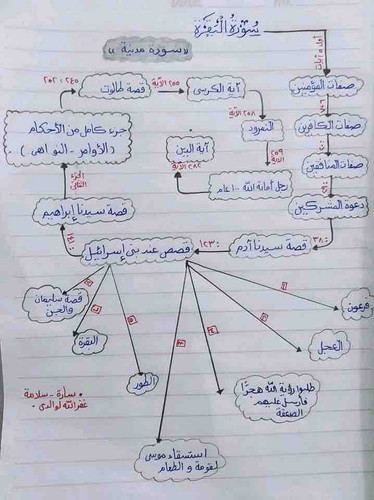 سُوْرَةُ الْبَقَرَة
«سورة مدنية»
أول ٥ آيات
صفات المؤمنين
٦،٧
صفات الكافرين
صفات المنافقين
دعوة المشركين
٣٨:
قصة سيدنا آدم
١٢٣:
قصص عند بني إسرائيل
قصة سيدنا إبراهيم
الجزء الثاني
جزء كامل من الأحكام
(الأوامر - النواهي)
٢٤٥: ٢٥٢
قصة طالوت
٢٥٥ الآية
آية الكرسي
٢٥٨ الآية
النمرود
٢٥٩ الآية
رجل أماته الله ١٠٠ عام
٢٨٢ الآية
آية الدين
فرعون
العجل
طلبوا رؤية الله جهرًا
فأرسل عليهم
الصعقة
استسقاء موسى
لقومة و الطعام
الطور
البقرة
قصة سليمان
والجن
سارة - سلامة
غفر الله لوالدي